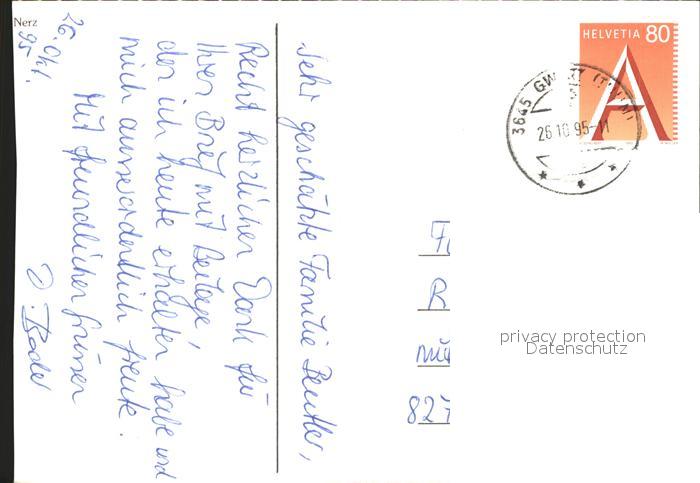 Nerz
26. Okt.
95.
Sehr geschätzte Familie Beutler,
Recht herzlichen Dank für
Ihren Brief mit Beilage,
der ich heute erhalten habe und
mich ausserordentlich freute.
Mit freundlichen Grüssen
HELVETIA 80
A
3645 GWATT (THUN)
26.10.95-11
R
827
privacy protection
Datenschutz